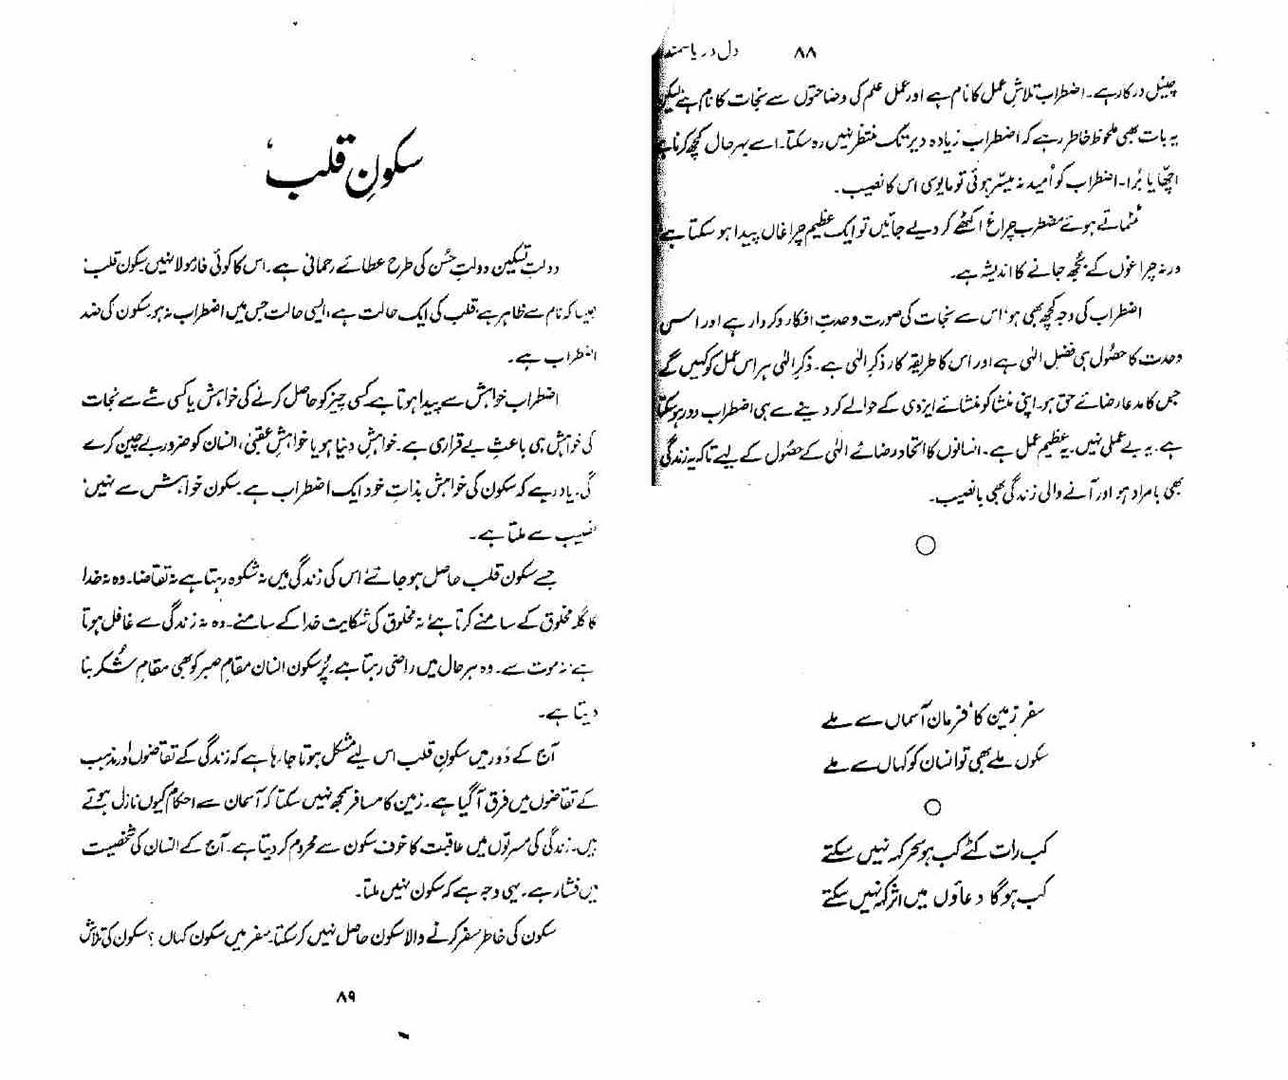 ۸۸ دل دریا سمندر
چینل درکار ہے۔ اضطراب تلاشِ عمل کا نام ہے اور عمل علم کی وضاحتوں سے نجات کا نام ہے لیکن
یہ بات بھی ملحوظِ خاطر رہے کہ اضطراب زیادہ دیر تک منتظر نہیں رہ سکتا۔ اسے بہر حال کچھ کرنا ہے
اچھّا یا بُرا۔ اضطراب کو اُمید نہ میسّر ہوئی تو مایوسی اس کا نصیب۔
ٹمٹماتے ہوئے مضطرب چراغ اکٹھے کر دیے جائیں تو ایک عظیم چراغاں پیدا ہو سکتا ہے
ورنہ چراغوں کے بُجھ جانے کا اندیشہ ہے۔
اضطراب کی وجہ کچھ بھی ہو، اس سے نجات کی صورت وحدتِ افکار و کردار ہے اور اس
وحدت کا حصُول ہی فضلِ الٰہی ہے اور اس کا طریقہ کار ذکرِ الٰہی ہے۔ ذکرِ الٰہی ہر اس عمل کو کہیں گے
جس کا مدعا رضائے حق ہو۔ اپنی منشا کو منشائے ایزدی کے حوالے کر دینے سے ہی اضطراب دور ہو سکتا
ہے۔ یہ بے عملی نہیں۔ یہ عظیم عمل ہے۔ انسانوں کا اتحاد رضائے الٰہی کے حصُول کے لیے تاکہ یہ زندگی
بھی بامراد ہو اور آنے والی زندگی بھی بانصیب۔
سفر زمین کا، فرمان آسماں سے ملے
سکوں ملے بھی تو انسان کو کہاں سے ملے
کب رات کٹے کب ہو سحر کہہ نہیں سکتے
کب ہو گا دعاؤں میں اثر کہہ نہیں سکتے
سکونِ قلب
دولتِ تسکین دولتِ حُسن کی طرح عطائے رحمانی ہے۔ اس کا کوئی فارمولا نہیں سکونِ قلب
جیسا کہ نام سے ظاہر ہے قلب کی ایک حالت ہے، ایسی حالت جس میں اضطراب نہ ہو۔ سکون کی ضد
اضطراب ہے۔
اضطراب خواہش سے پیدا ہوتا ہے کسی چیز کو حاصل کرنے کی خواہش یا کسی شے سے نجات
کی خواہش ہی باعثِ بے قراری ہے۔ خواہشِ دنیا ہو یا خواہشِ عقبیٰ، انسان کو ضرور بے چین کرے
گی۔ یاد رہے کہ سکون کی خواہش بذاتِ خود ایک اضطراب ہے۔ سکون خواہش سے نہیں
نصیب سے ملتا ہے۔
جسے سکونِ قلب حاصل ہو جائے اس کی زندگی میں نہ شکوہ رہتا ہے نہ تقاضا۔ وہ نہ خدا
کا گلہ مخلوق کے سامنے کرتا ہے نہ مخلوق کی شکایت خدا کے سامنے۔ وہ نہ زندگی سے غافل ہوتا
ہے نہ موت سے۔ وہ ہر حال میں راضی رہتا ہے۔ پُر سکون انسان مقامِ صبر کو بھی مقامِ شُکر بنا
دیتا ہے۔
آج کے دَور میں سکونِ قلب اس لیے مشکل ہوتا جا رہا ہے کہ زندگی کے تقاضوں اور مذہب
کے تقاضوں میں فرق آ گیا ہے۔ زمین کا مسافر سمجھ نہیں سکتا کہ آسمان سے احکام کیوں نازل ہوتے
ہیں۔ زندگی کی مسرتوں میں عاقبت کا خوف سکون سے محروم کر دیتا ہے۔ آج کے انسان کی شخصیت
میں فشار ہے۔ یہی وجہ ہے کہ سکون نہیں ملتا۔
سکون کی خاطر سفر کرنے والا سکون حاصل نہیں کر سکتا۔ سفر میں سکون کہاں؟ سکون کی تلاش
۸۹